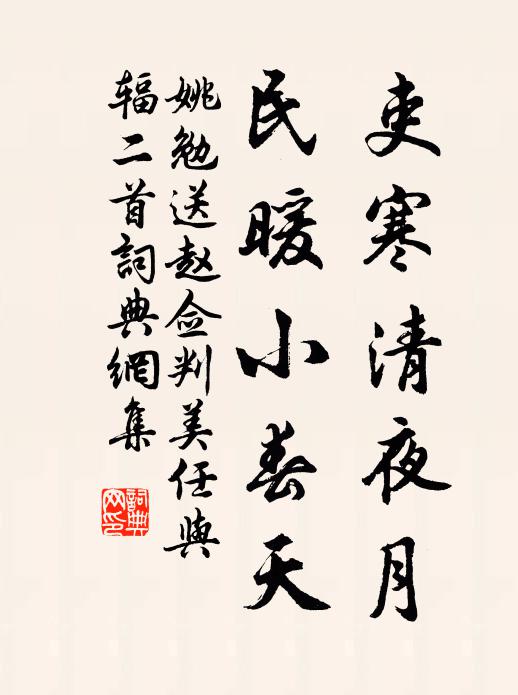 吏寒清夜月
民暖小春天
姚勉送赵佥判美任与
辐二首詞典網集
詞典网印